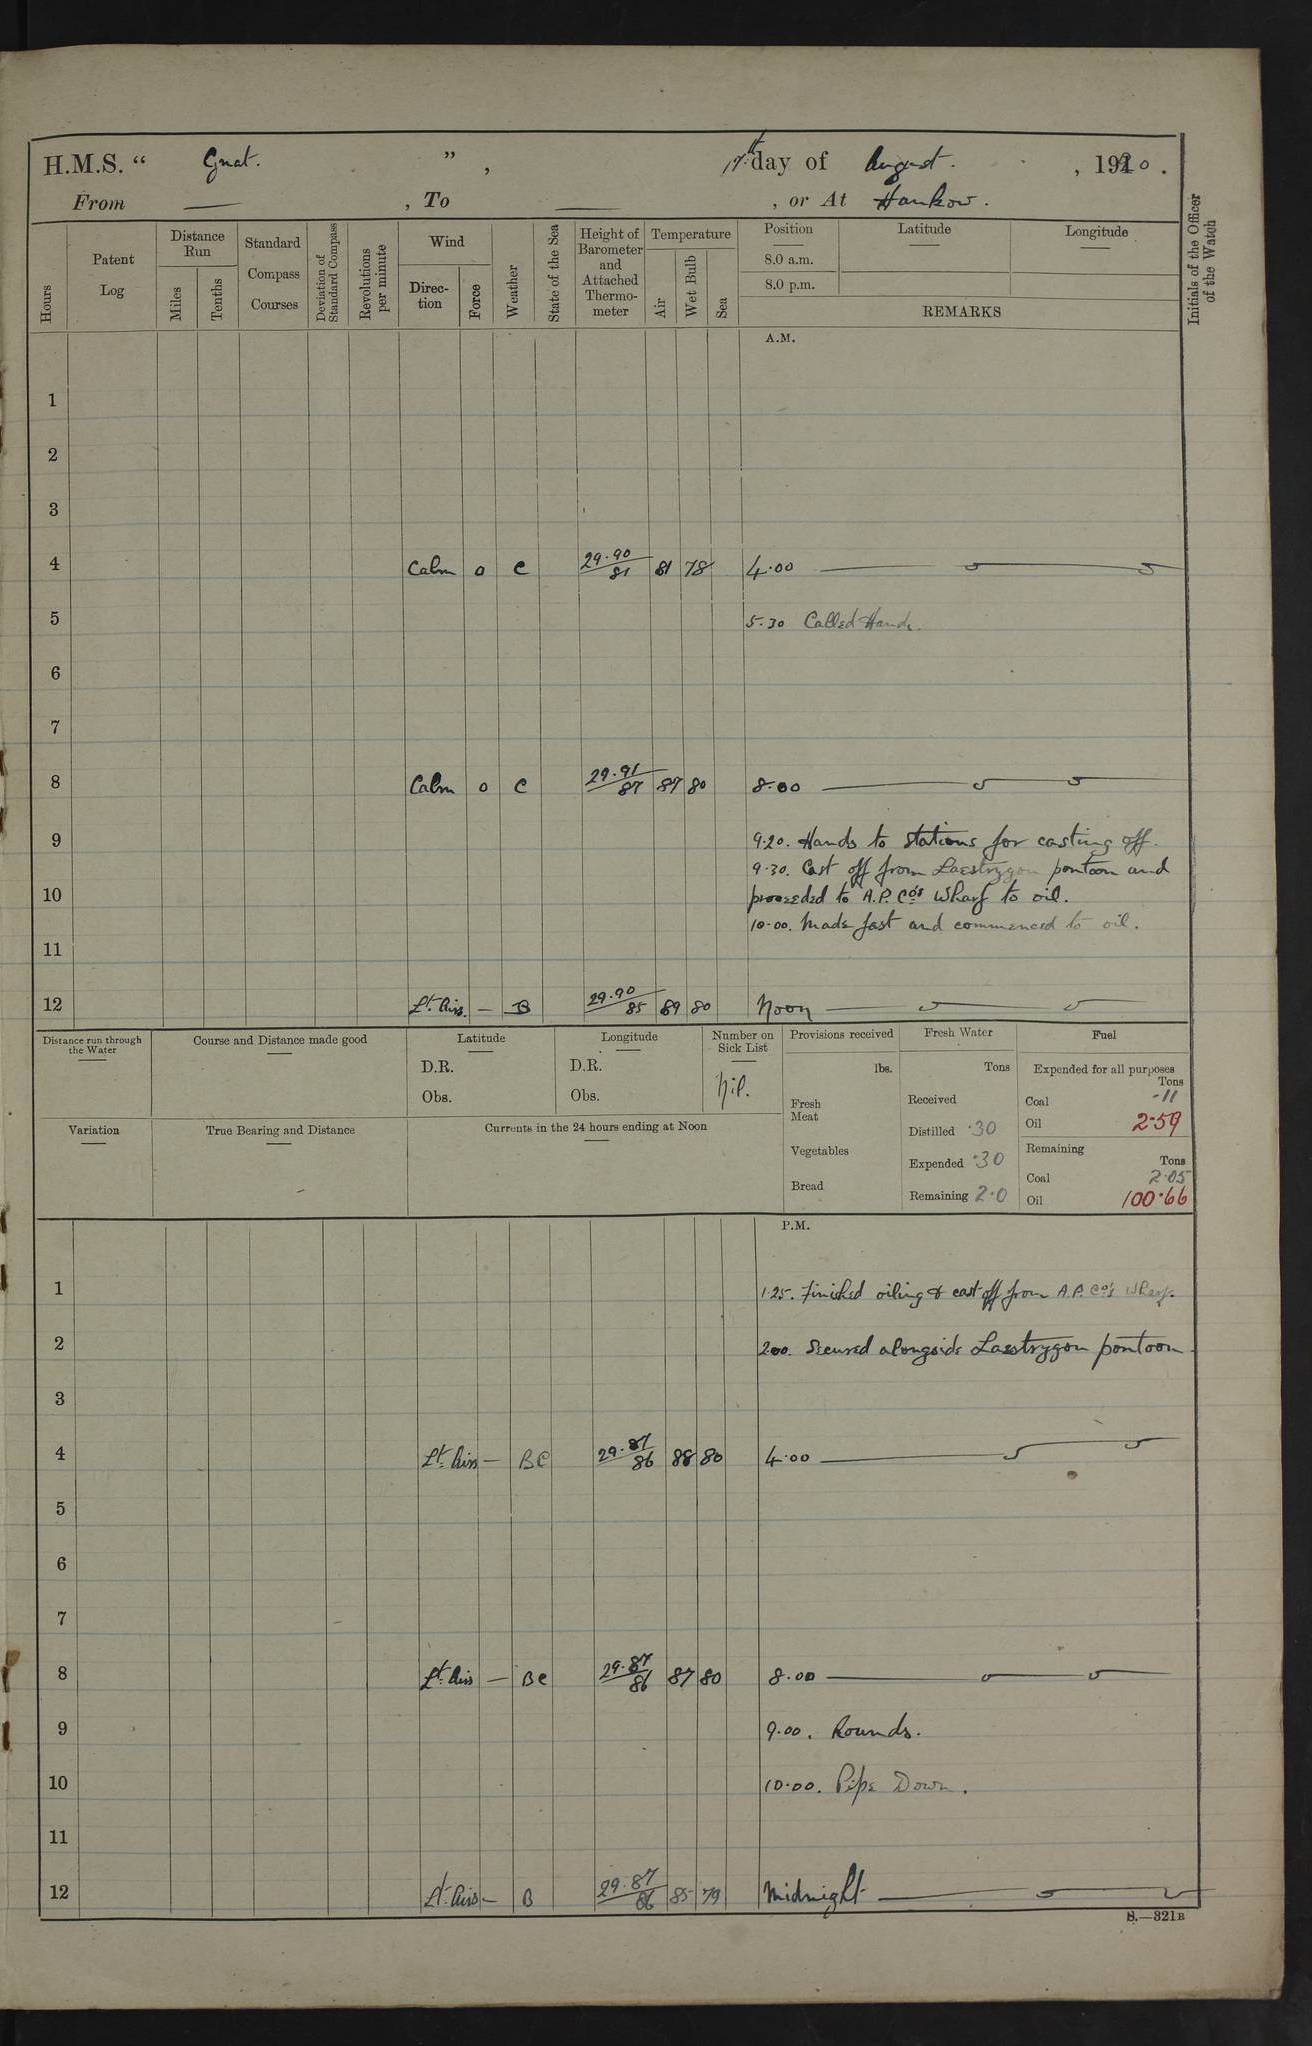 H.M.S. “ Gnat. ” , 17th day of August. , 1920.
From — , To — , or At Hankow.
Hours
Patent Log
Distance Run
Miles
Tenths
Standard Compass Courses
Deviation of Standard Compass
Revolutions per minute
Wind
Direction
Force
Weather
State of the Sea
Height of Barometer and Attached Thermometer
Temperature
Air
Wet Bulb
Sea
Position
8.0 a.m.
8.0 p.m.
Latitude
Longitude
REMARKS
Initials of the Officer of the Watch
A.M.
1
2
3
4 Calm 0 C 29.90/81 81 78 4.00
5 5.30 Called Hands.
6
7
8 Calm 0 C 29.91/87 87 80 8.00
9 9.20. Hands to stations for casting off.
9.30. Cast off from Laestrygon pontoon and
10 proceeded to A.P. Co's Wharf to oil.
10.00. Made fast and commenced to oil.
11
12 Lt. Airs. — B 29.90/85 89 80 Noon
Distance run through the Water
Course and Distance made good
Latitude
D.R.
Obs.
Longitude
D.R.
Obs.
Number on Sick List
Nil.
Provisions received
lbs.
Fresh Meat
Vegetables
Bread
Fresh Water
Tons
Received
Distilled .30
Expended .30
Remaining 2.0
Fuel
Expended for all purposes
Tons
Coal .11
Oil 2.59
Remaining
Tons
Coal 2.05
Oil 100.66
Variation
True Bearing and Distance
Currents in the 24 hours ending at Noon
P.M.
1 1.25. Finished oiling & cast off from A.P. Co's Wharf.
2 2.00. Secured alongside Laestrygon pontoon.
3
4 Lt. Airs — BC 29.87/86 88 80 4.00
5
6
7
8 Lt. Airs — BC 29.87/86 87 80 8.00
9 9.00. Rounds.
10 10.00. Pipe Down.
11
12 Lt. Airs — B 29.87/86 85 79 Midnight
S.—321B